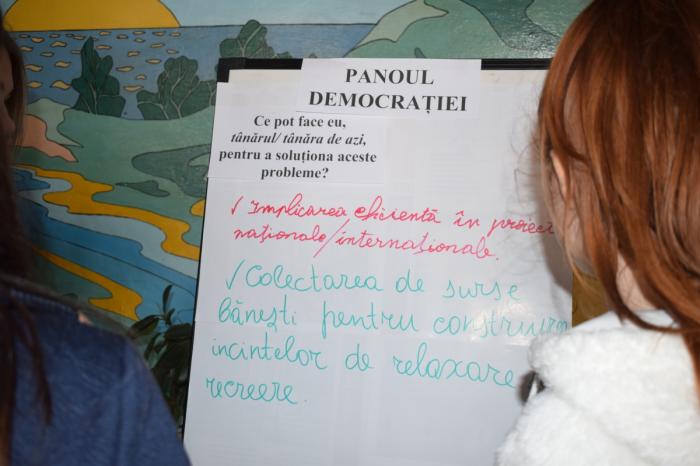 PANOUL
DEMOCRAȚIEI
Ce pot face eu,
tânărul/ tânăra de azi,
pentru a soluționa aceste
probleme?
✓ Implicarea eficientă în proiect
naționale/internaționale.
✓ Colectarea de surse
bănești pentru construirea
incintelor de relaxare
recreere.